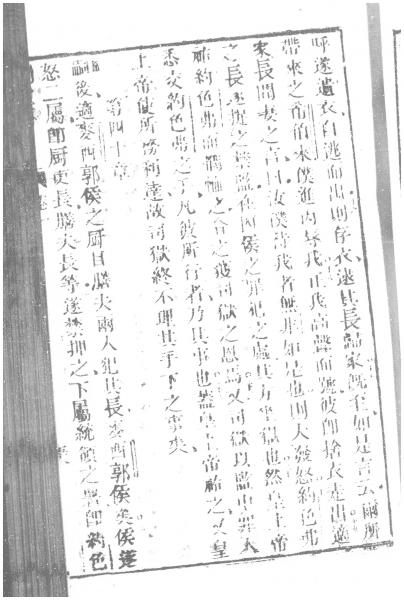 呼遂遺衣自逃而出則存衣遂其長歸家既至如是言云爾所
帶來之希伯來僕進內辱我正我高聲而號彼即捨衣走出適
家長聞妻之言曰汝僕待我者無非如是也則大發怒約色弗
之長遂把之禁監在因侯之罪犯之處其乃坐獄也然皇上帝
祐約色弗而憫恤之令之獲司獄之恩焉又司獄以監中罪人
悉交約色弗之手凡彼所行者乃其事也蓋皇上帝祐之又皇
上帝使所務利達故司獄終不理其手下之事矣
第四十章
嗣後適麥西郭侯之厨目膳夫兩人犯其長麥西郭侯矣侯遂
怒二屬即厨吏長膳夫長等遂禁押之下屬統領之署即約色